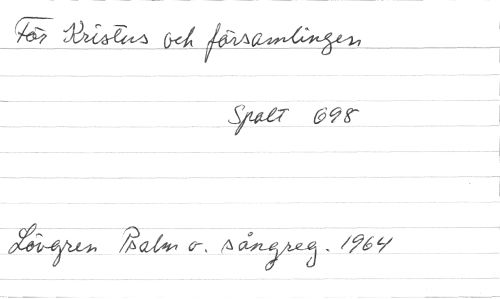 För Kristus och församlingen
Spalt 698
Lövgren Psalm o. sångreg. 1964